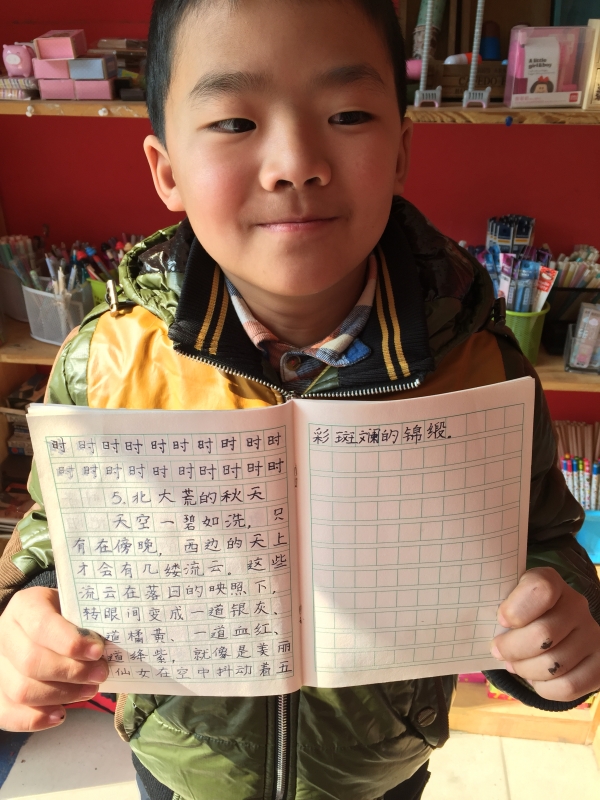 时 时 时 时 时 时 时 时 时 时
时 时 时 时 时 时 时 时 时 时
5.北大荒的秋天
天空一碧如洗，只
有在傍晚，西边的天上
才会有几缕流云。这些
流云在落日的映照下，
转眼间变成一道银灰、
道橘黄、一道血红、
道绛紫，就像是美丽
仙女在空中抖动着五
彩斑斓的锦缎。